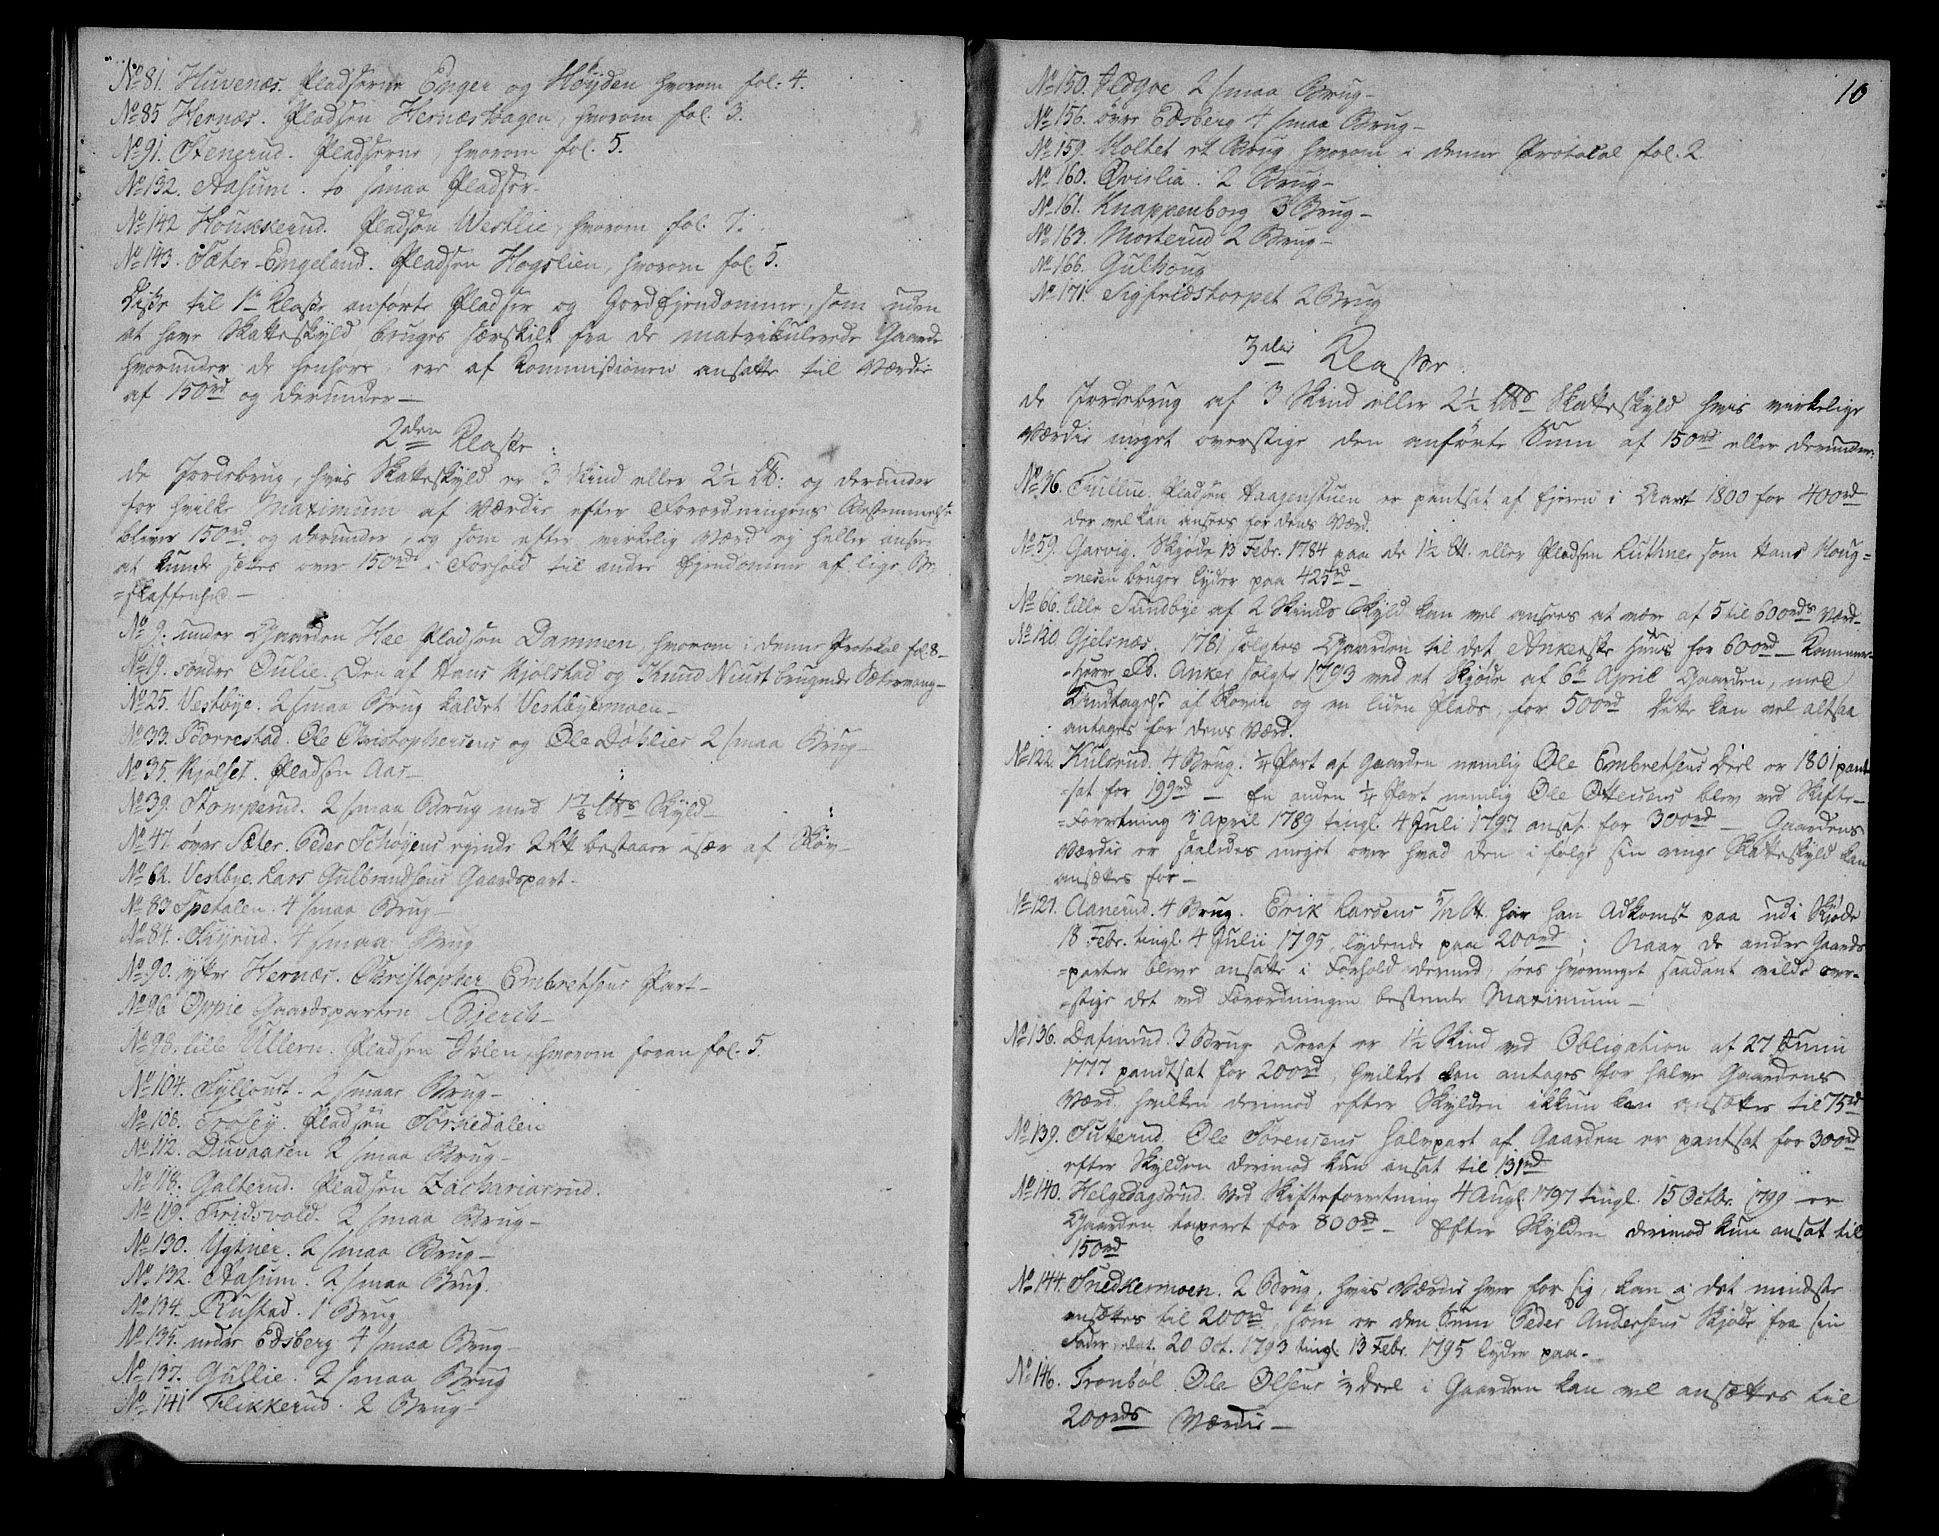 No 81. Huvenæs. Pladserne Enger og Høyden hvorom fol: 4.
No 85 Hernæs. Pladsen Hernæshagen, hvorom fol. 3.
No 91. Stenerud. Pladserne, hvorom fol. 5.
No 132. Aasum. to smaa Pladser.
No 142 Houkerud. Pladsen Westlie, hvorom fol. 7.
No 143. Sæter-Engeland. Pladsen Hogslien, hvorom fol. 5.
Diße til 1te Klaße anførte Pladser og Jordejendomme, som uden
at have Skatteskyld bruges særskilt fra de matrikulerede Gaarde
hvorunder de henhøre, ere af Kommißionen ansatte til Værdie
af 150rd og derunder—
2den Klaße:
de Jordebrug, hvis Skatteskyld er 3 Skind eller 2½ : og derunder
for hvilke Maximum af Værdie efter Forordningens Bestemmelse
bliver 150rd og derunder, og som efter virkelig Værd ej heller ansees
at kunde sættes over 150rd i Forhold til andre Ejendomme af lige Be-
=skaffenhed—
No 9. under Gaarden Hee Pladsen Dammen, hvorom i denne Protokol fol. 8—
No 19. søndre Oulie. Den af Hans Kjølstad og Knud Niust brugende Sætervang—
No 25. Vestbye. 2 smaa Brug kaldet Vestbyemoen—
No 33. Torrestad. Ole Christophersens og Ole Døhlies 2 smaa Brug—
No 35. Kjølset. Pladsen Aas—
No 39. Stomperud. 2 smaa Brug med 1⅞ Skyld—
No 47. øvre Sæter. Peder Schøyens ejende 2 bestaaer især af Skov—
No 62. Vestbye. Lars Gulbrandsens Gaardspart—
No 83 Spetalen. 4 smaa Brug—
No 84. 4 smaa Brug
No 90. ytre Hernæs. Christopher Embretsens Part—
No 96 Oppie Gaardsparten Bjerch—
No 98. lille Ullern. Pladsen hvorom foran fol. 5.
No 104. 2 smaae Brug—
No 108. Pladsen Torkedalen
No 112. 2 smaa Brug—
No 118. Galterud. Pladsen Zachariasrud.
No 119. Fridsvold. 2 smaa Brug—
No 130. Ygtner. 2 smaa Brug—
No 132. Aasum. 2 smaa Brug.
No 134. Rustad. 1 Brug
No 135. nedre Edsberg 4 smaa Brug—
No 137. Gullie. 2 smaa Brug
No 141 Flikkerud. 2 Brug—
10
No 150. 2 smaa Brug—
No 156. øvre Edsberg 4 smaa Brug—
No 159. Holtet et Brug hvorom i denne Protokol fol. 2
No 160. Qvislia. 2 Brug—
No 161. Knappenborg 3 Brug—
No 163. Morterud 2 Brug—
No 166. Gulhoug
No 171. Sigfridstorpet 2 Brug
3die Klaße.
de Jordebrug af 3 Skind eller 2½ Skatteskyld hvis virkelige
Værdie meget overstige den anførte Sum af 150rd eller derunder:
No 36. Tulline. Pladsen Haagenstuen er pantsat af Ejeren i Aaret 1800 for 400rd
der vel kan ansees for dens Værd.
No 59. Garvig. Skjøde 13 Febr. 1784 paa de 1½ eller Pladsen Luthner som Hans Houg-
=nesen bruger lyder paa 425rd—
No 66. lille Sundbye af 2 Skinds Skyld kan vel ansees at være af 5 til 600rds Værd—
No 120. Gjelsnæs. 1781 solgtes Gaarden til det Ankerske Huus for 600rd— Kammer-
=Herre B. Anker solgte 1793 ved et Skjøde af 6te April Gaarden, med
Undtagelse af Skoven og en liden Plads, for 500rd Dette kan vel altsaa
antages for dens Værd.
No 122. Kulsrud. 4 Brug. ¼ Part af Gaarden nemlig Ole Embretsens Deel er 1801 pant-
=sat for 199rd— En anden ¼ Part nemlig Ole Ottesens blev ved Skifte-
=Forretning April 1789 tingl. 4 Juli 1797 ansat for 300rd— Gaardens
Værdie er saaledes meget over hvad den i følge sin ringe Skatteskyld kan
ansættes for—
No 127. Aanerud. 4 Brug. Erik Larsens har han Adkomst paa udi Skjøde
18 Febr. tingl. 4 Julii 1795, lydende paa 200rd; Naar de andre Gaards-
=parter bleve ansatte i Forhold dermed, sees hvormeget saadant vilde over-
=stige det ved Forordningen bestemte Maximum—
No 136. Dafinrud. 3 Brug Deraf er 1½ Skind ved Obligation af 27 Junii
1777 pandtsat for 200rd, hvilket kan antages for halve Gaardens
Værd, hvilken derimod efter Skylden ikkun kan ansættes til 75rd
No 139. Suterud. Ole Sørensens halvpart af Gaarden er pantsat for 300rd
efter Skylden derimod kun ansat til 131rd
No 140. Helgedagsrud. Ved Skifteforretning 4 Aug. 1797 tingl. 15 Octbr. 1799 er
Gaarden taxeret for 800rd— Efter Skylden derimod kun ansat til
150rd
No 144. Snedkermoen. 2 Brug, hvis Værdie hver for sig, kan i det mindste
ansættes til 200rd, som er den Sum Peder Andersens Skjøde fra sin
Fader, dat. 20 Oct. 1793 tingl. 13 Febr. 1795 lyder paa—
No 146. Trombøl. Ole Olsens ½ Deel i Gaarden kan vel ansættes til
200rds Værdie—